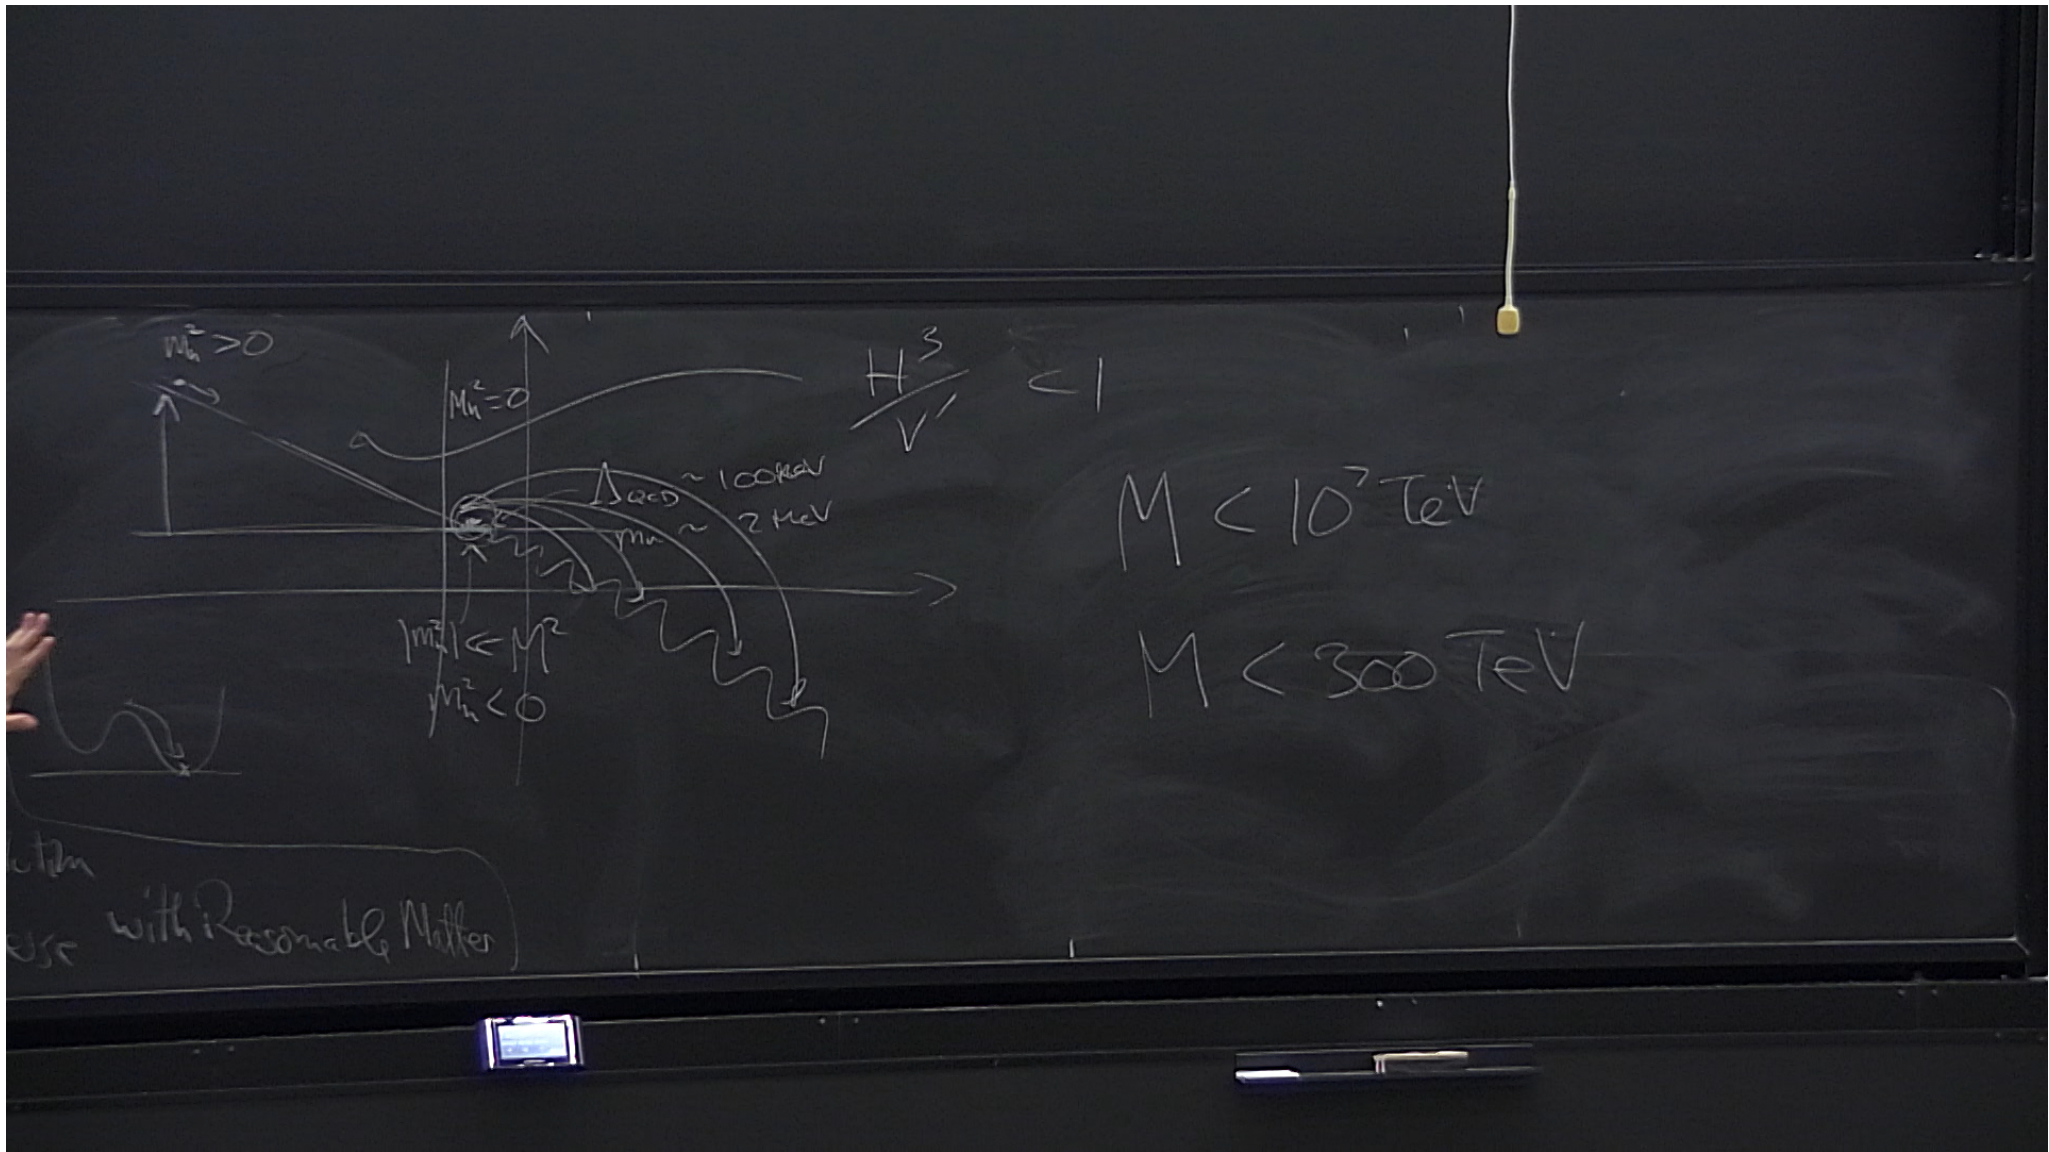 m_h^2 > 0
m_h^2 = 0
H^3 / V' < 1
Λ_QCD ~ 100 keV
m_u ~ 2 MeV
M < 10^7 TeV
|m_h^2| << M^2
m_h^2 < 0
M < 300 TeV
with Reasonable Matter